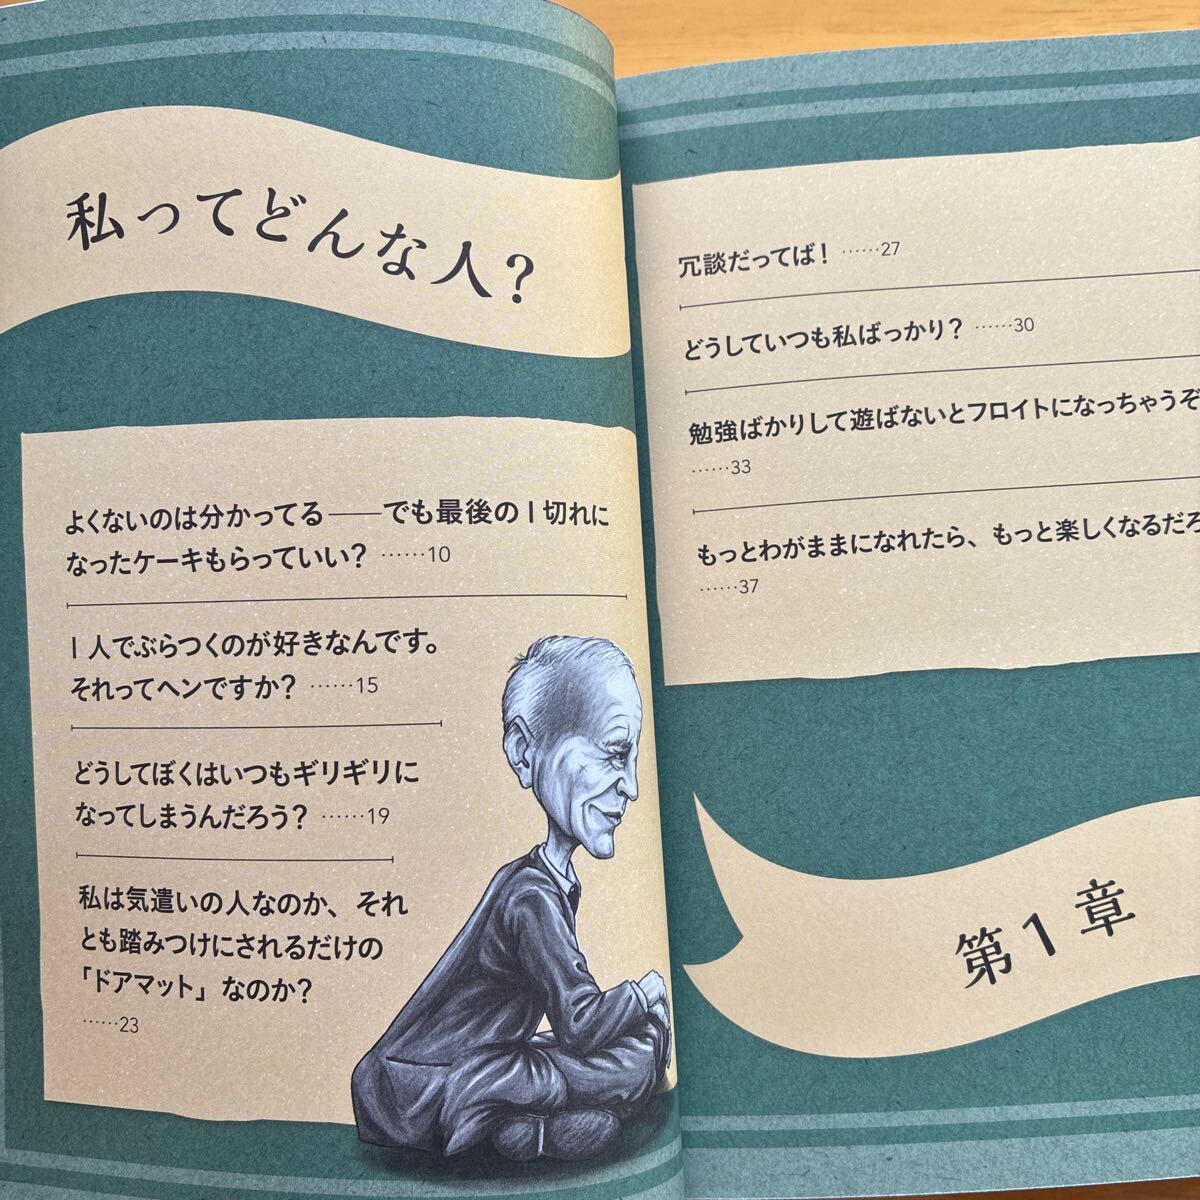 私ってどんな人?
よくないのは分かってる――でも最後の1切れに
なったケーキもらっていい? ……10
1人でぶらつくのが好きなんです。
それってヘンですか? ……15
どうしてぼくはいつもギリギリに
なってしまうんだろう? ……19
私は気遣いの人なのか、それ
とも踏みつけにされるだけの
「ドアマット」なのか?
……23
冗談だってば! ……27
どうしていつも私ばっかり? ……30
勉強ばかりして遊ばないとフロイトになっちゃうぞ
……33
もっとわがままになれたら、もっと楽しくなるだろ
……37
第1章